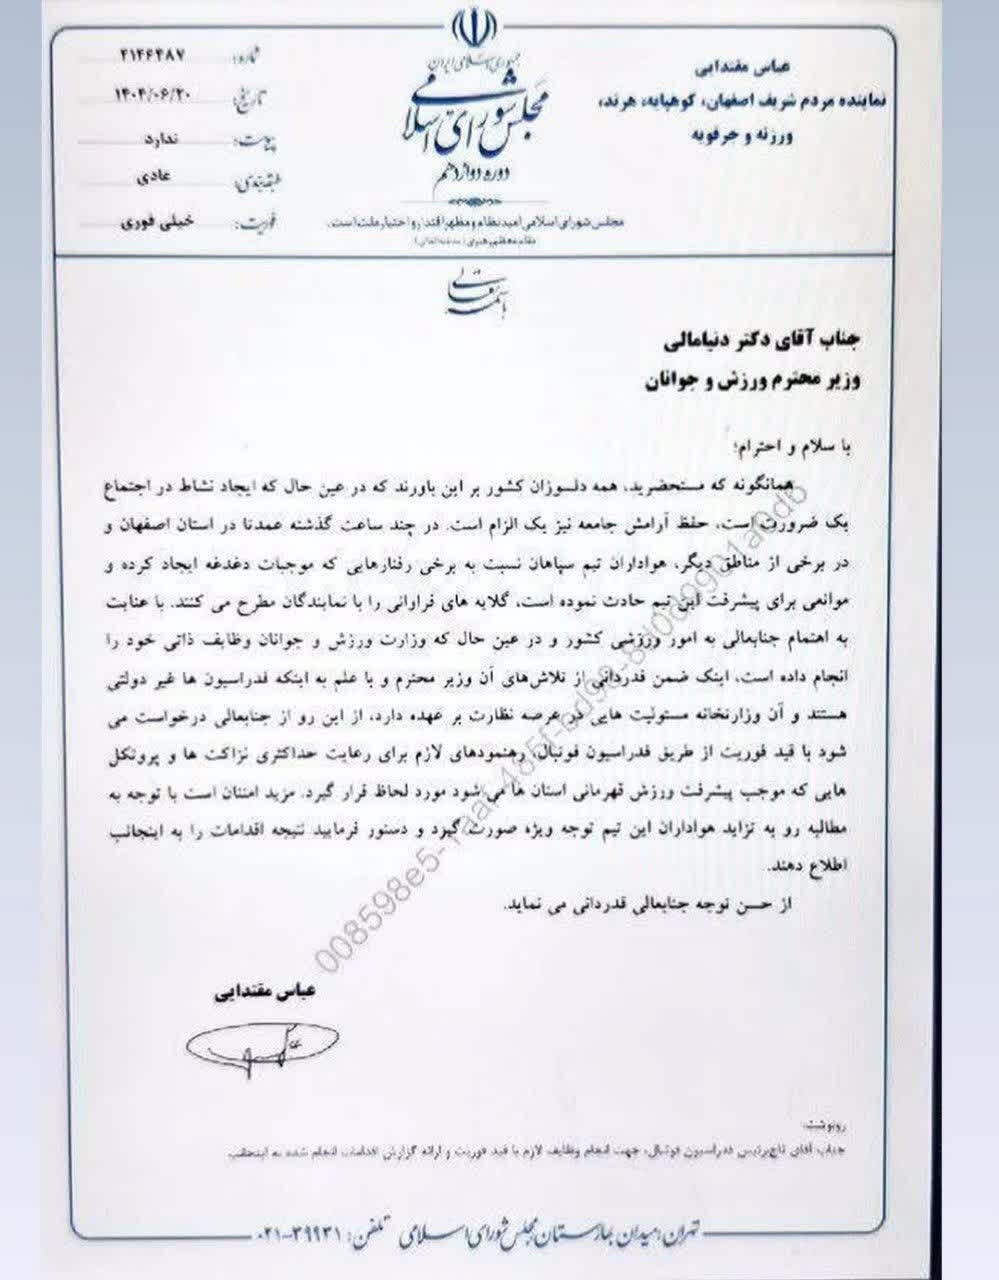 عباس مقتدایی
نماینده مردم شریف اصفهان، کوهپایه، هرند،
ورزنه و جرقویه
جمهوری اسلامی ایران
مجلس شورای اسلامی
دوره دوازدهم
مجلس شورای اسلامی امید نظام و مظهر اقتدار و اختیار ملت است.
مقام معظم رهبری (مدظله العالی)
شماره: ۲۱۴۶۴۸۷
تاریخ: ۱۴۰۴/۰۶/۲۰
پیوست: ندارد
طبقه‌بندی: عادی
فوریت: خیلی فوری
باسمه تعالی
جناب آقای دکتر دنیامالی
وزیر محترم ورزش و جوانان
با سلام و احترام؛
همانگونه که مستحضرید، همه دلسوزان کشور بر این باورند که در عین حال که ایجاد نشاط در اجتماع
یک ضرورت است، حفظ آرامش جامعه نیز یک الزام است. در چند ساعت گذشته عمدتا در استان اصفهان و
در برخی از مناطق دیگر، هواداران تیم سپاهان نسبت به برخی رفتارهایی که موجبات دغدغه ایجاد کرده و
موانعی برای پیشرفت این تیم حادث نموده است، گلایه های فراوانی را با نمایندگان مطرح می کنند. با عنایت
به اهتمام جنابعالی به امور ورزشی کشور و در عین حال که وزارت ورزش و جوانان وظایف ذاتی خود را
انجام داده است، اینک ضمن قدردانی از تلاش‌های آن وزیر محترم و با علم به اینکه فدراسیون ها غیر دولتی
هستند و آن وزارتخانه مسئولیت هایی در عرصه نظارت بر عهده دارد، از این رو از جنابعالی درخواست می
شود با قید فوریت از طریق فدراسیون فوتبال، رهنمودهای لازم برای رعایت حداکثری نزاکت ها و پروتکل
هایی که موجب پیشرفت ورزش قهرمانی استان ها می شود مورد لحاظ قرار گیرد. مزید امتنان است با توجه به
مطالبه رو به تزاید هواداران این تیم توجه ویژه صورت گیرد و دستور فرمایید نتیجه اقدامات را به اینجانب
اطلاع دهند.
از حسن توجه جنابعالی قدردانی می نماید.
عباس مقتدایی
رونوشت:
جناب آقای تاج رئیس فدراسیون فوتبال، جهت انجام وظایف لازم با قید فوریت و ارائه گزارش اقدامات انجام شده به اینجانب
تهران: میدان بهارستان مجلس شورای اسلامی تلفن: ۳۹۹۳۱-۰۲۱